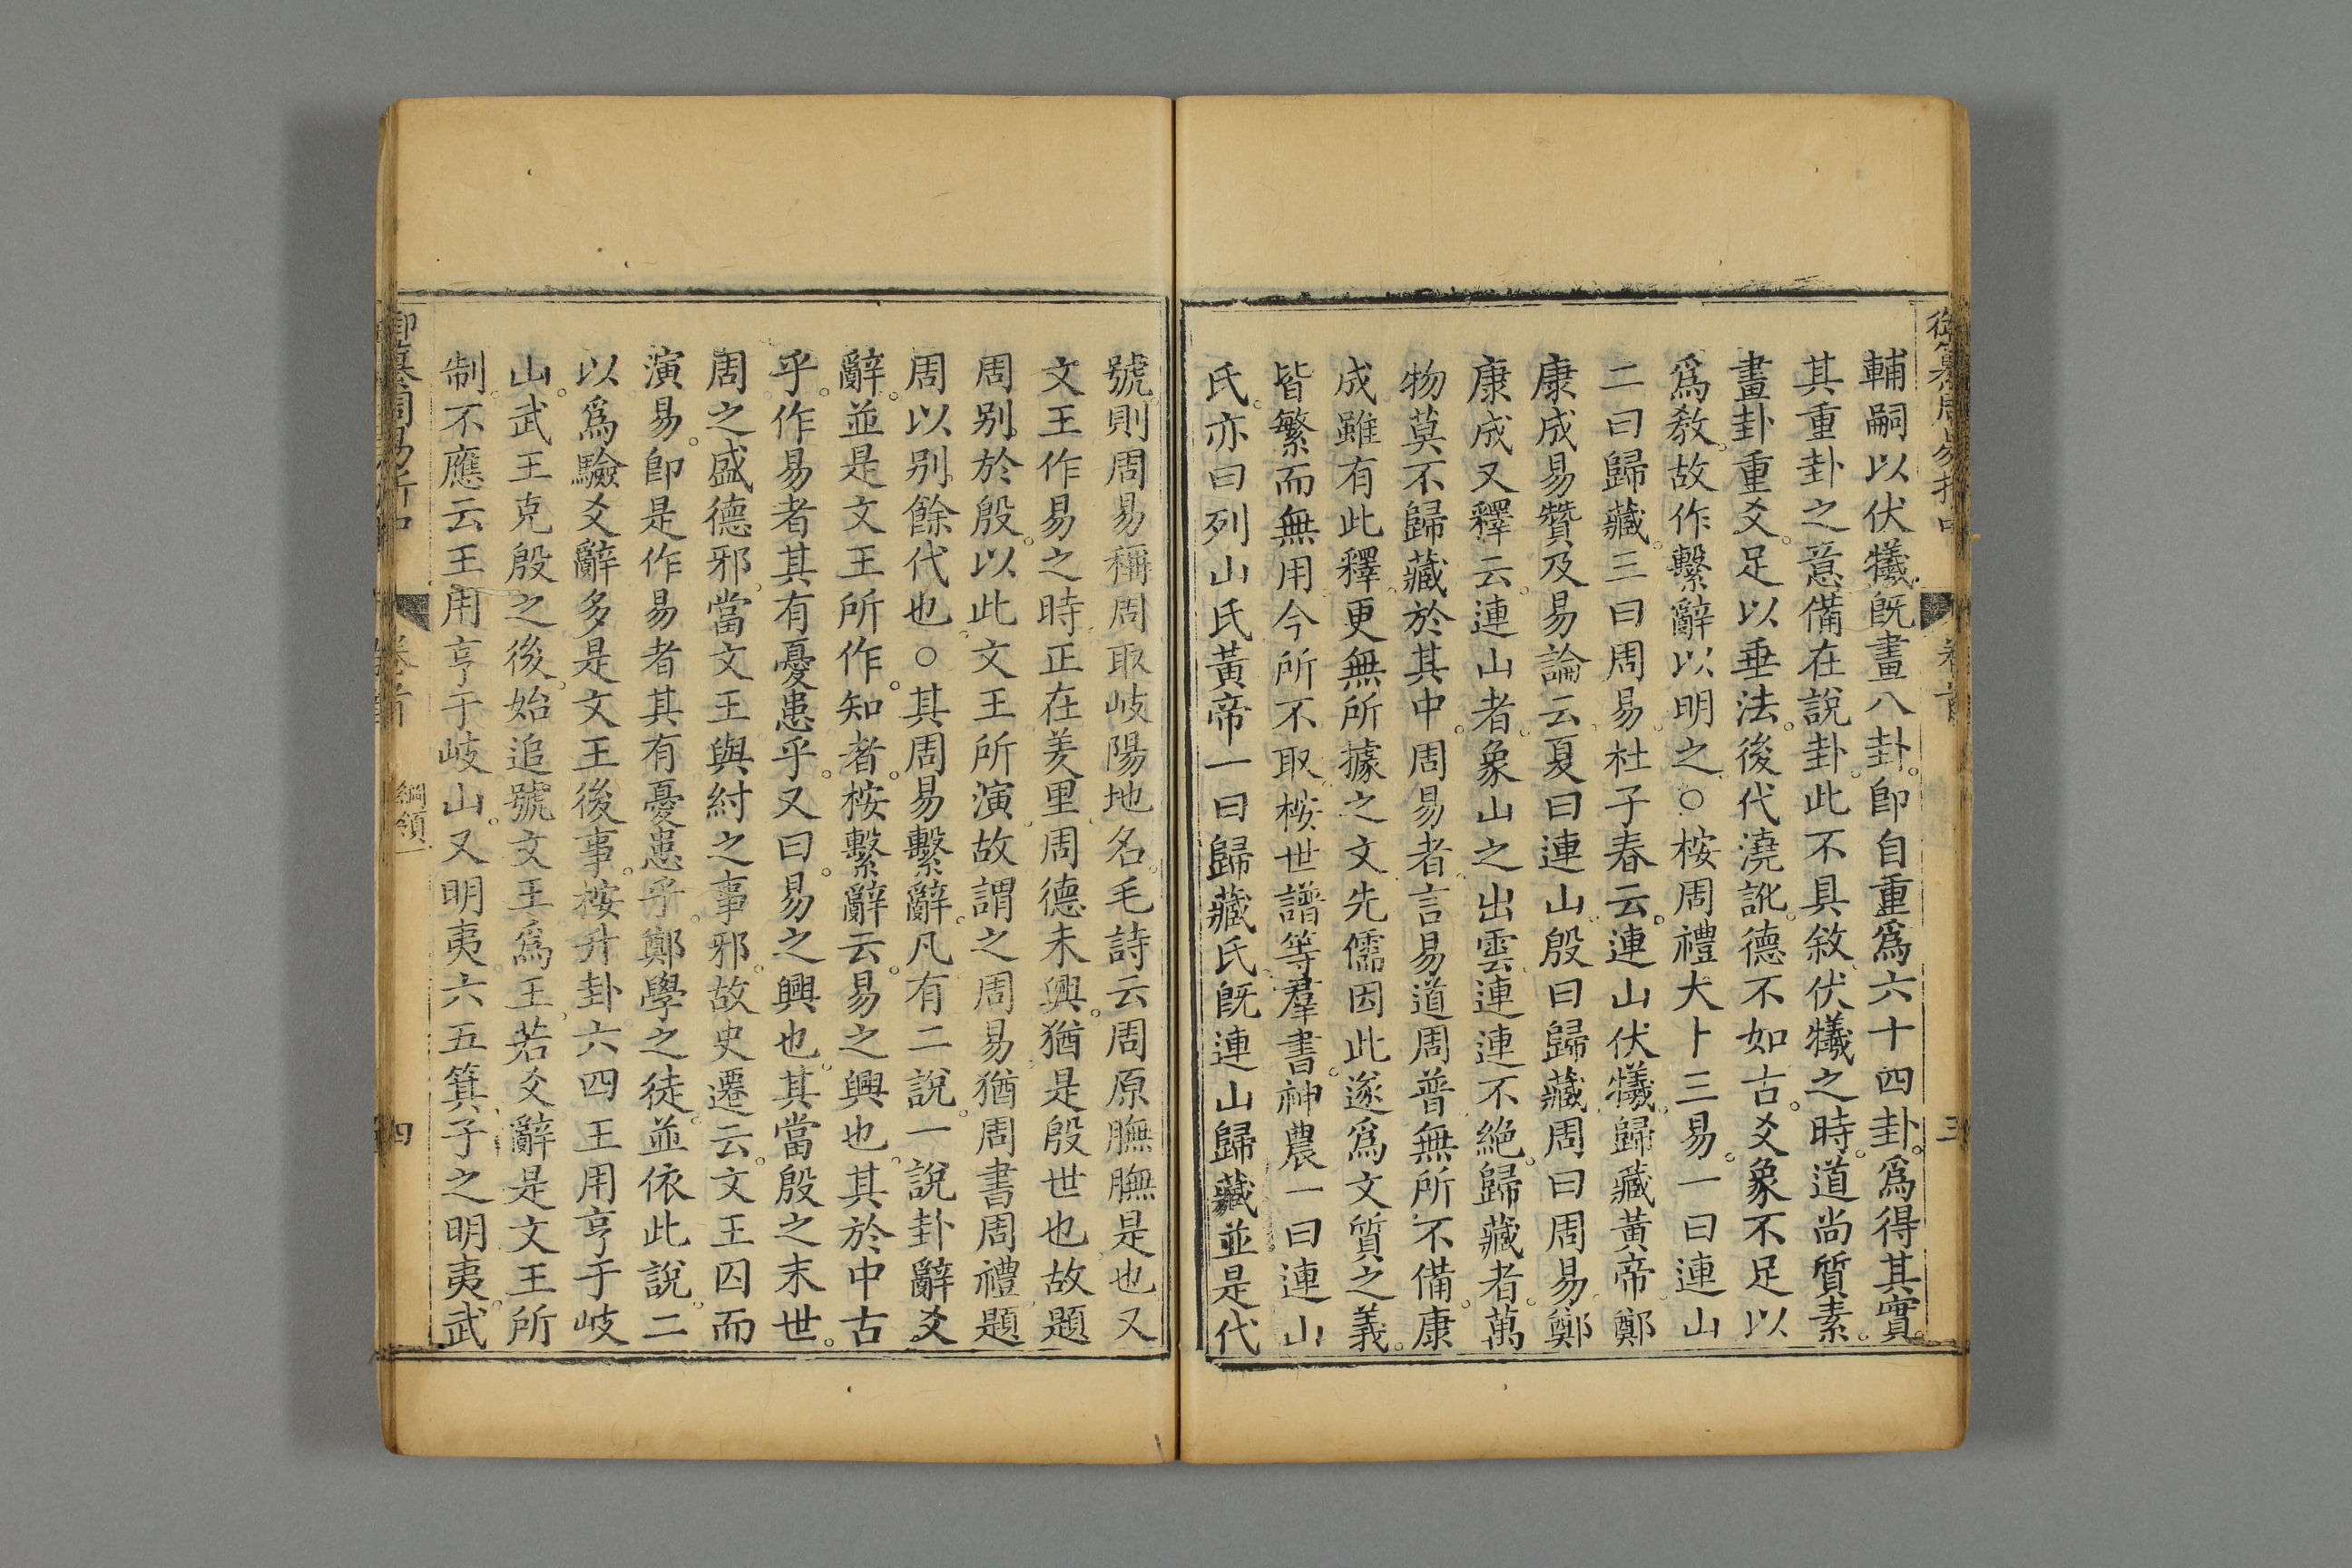 輔嗣以伏犧既畫八卦。卽自重爲六十四卦。爲得其實。
其重卦之意備在說卦。此不具敘。伏犧之時。道尚質素。
畫卦重爻。足以垂法。後代澆訛。德不如古。爻象不足以
爲教。故作繫辭以明之。○桉周禮大卜三易。一曰連山
二曰歸藏。三曰周易。杜子春云。連山伏犧。歸藏黃帝。鄭
康成易贊及易論云。夏曰連山。殷曰歸藏。周曰周易。鄭
康成又釋云。連山者。象山之出雲。連連不絶。歸藏者。萬
物莫不歸藏於其中。周易者。言易道周普。無所不備。康
成雖有此釋。更無所據之文。先儒因此。遂爲文質之義。
皆繁而無用。今所不取。桉世譜等羣書。神農一曰連山
氏。亦曰列山氏。黃帝一曰歸藏氏。旣連山歸藏。並是代
號。則周易稱周。取岐陽地名。毛詩云周原膴膴是也。又
文王作易之時。正在羑里。周德未興。猶是殷世也。故題
周别於殷。以此文王所演。故謂之周易。猶周書周禮。題
周以别餘代也。○其周易繫辭。凡有二說。一說卦辭爻
辭。並是文王所作。知者。桉繫辭云。易之興也。其於中古
乎。作易者其有憂患乎。又曰。易之興也。其當殷之末世。
周之盛德邪。當文王與紂之事邪。故史遷云。文王囚而
演易。卽是作易者其有憂患乎。鄭學之徒。並依此說。二
以爲驗爻辭多是文王後事。桉升卦六四王用亨于岐
山。武王克殷之後。始追號文王爲王。若爻辭是文王所
制。不應云王用亨于岐山。又明夷六五箕子之明夷。武
卷首
綱領一
四